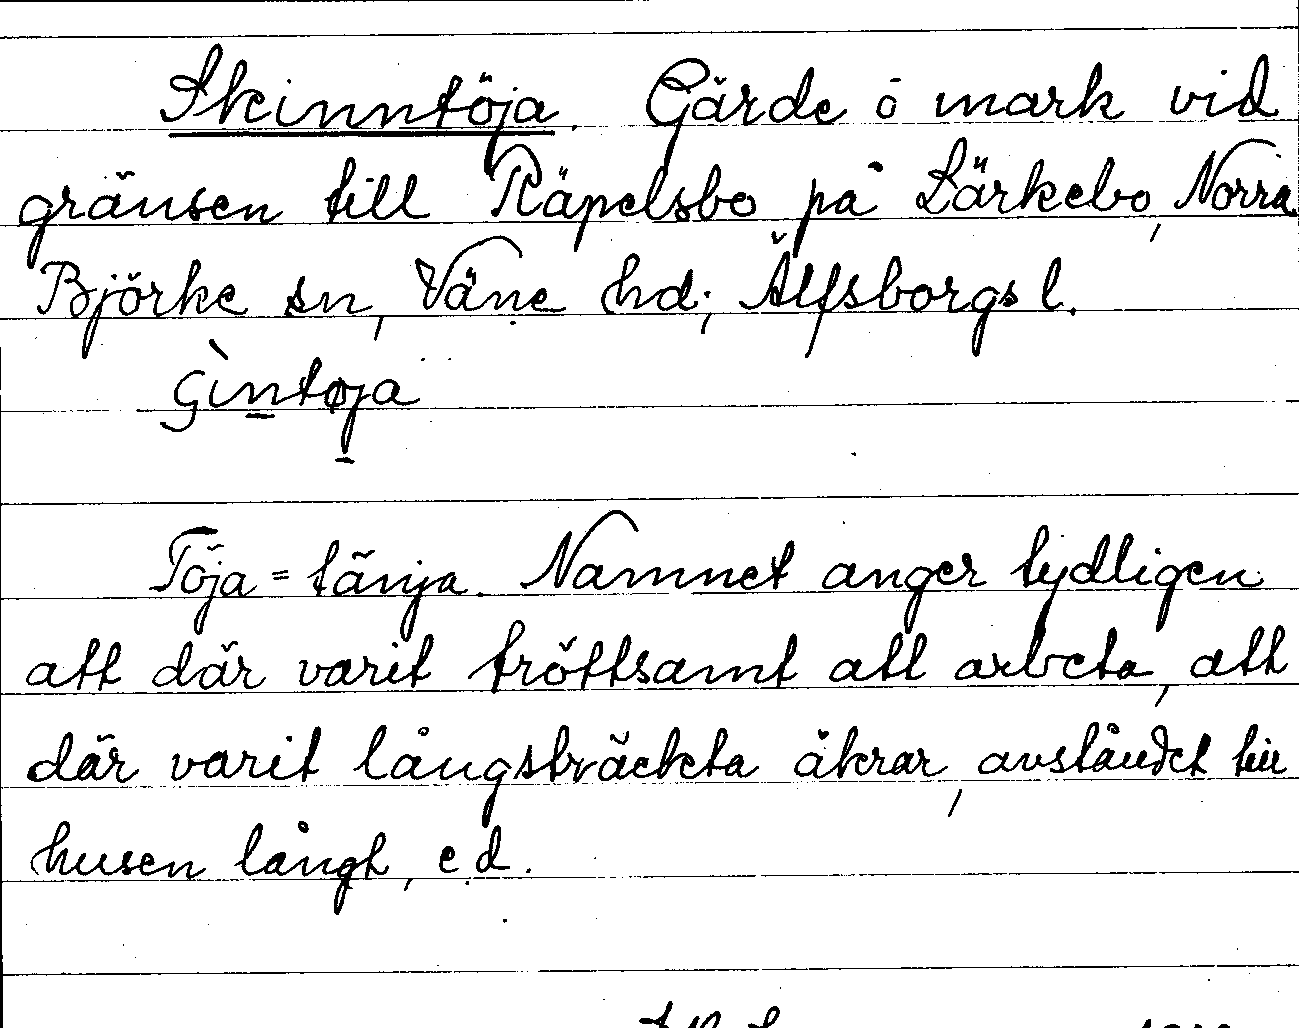 Skinntöja. Gärde o mark vid
gränsen till Räpelsbo på Lärkebo, Norra
Björke sn, Väne hd; Älfsborgs l.
Töja = tänja. Namnet anger tydligen
att där varit tröttsamt att arbeta, att
där varit långsträckta åkrar, avståndet till
husen långt, e.d.